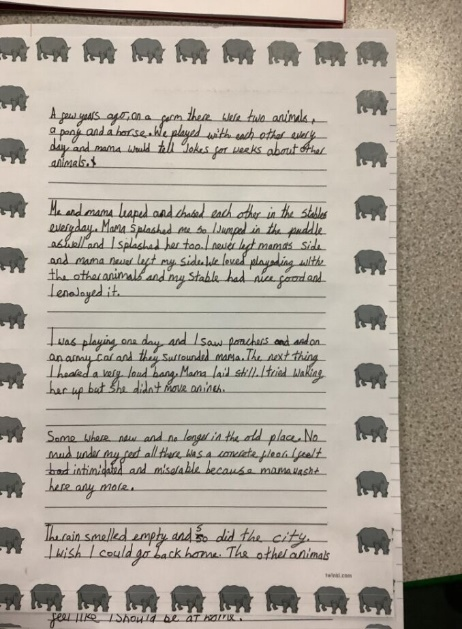 A few years ago, on a farm there were two animals,
a pony and a horse. We played with each other every
day and mama would tell Jokes for weeks about other
animals.
Me and mama leaped and chased each other in the stables
everyday. Mama splashed me so I Jumped in the puddle
aswell and I splashed her too. I never left mamas side
and mama never left my side. We loved playing with
the other animals and my stable had nice food and
I enojoyed it.
I was playing one day and I saw poachers and on
an army car and they surrounded mama. The next thing
I heared a very loud bang. Mama laid still. I tried waking
her up but she didn't move an inch.
Some where new and no longer in the old place. No
mud under my feet all there was a concrete floor. I feelt
bad intimidated and miserable because mama
here any more.
The rain smelled empty and so did the city.
I wish I could go back home. The other animals
twinkl.com
feel like I should be at home.